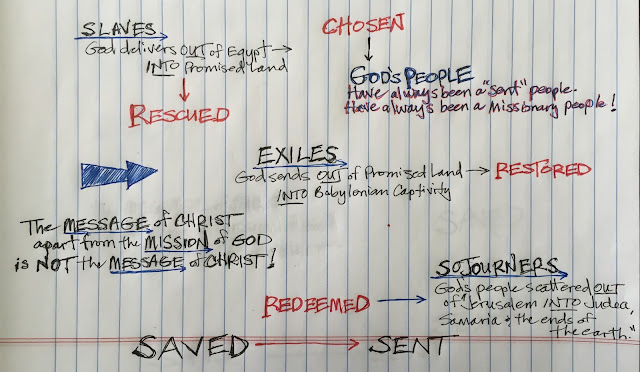 SLAVES
God delivers OUT of Egypt →
INTO Promised Land
RESCUED
CHOSEN
GOD'S PEOPLE
Have always been a "sent" people.
Have always been a missionary people!
EXILES
God sends OUT of Promised Land → RESTORED
INTO Babylonian Captivity
The MESSAGE of CHRIST
apart from the MISSION of GOD
is NOT the MESSAGE of CHRIST!
SOJOURNERS
God's people scattered OUT
of "Jerusalem INTO Judea,
Samaria & the ends of
the earth."
REDEEMED →
SAVED → SENT